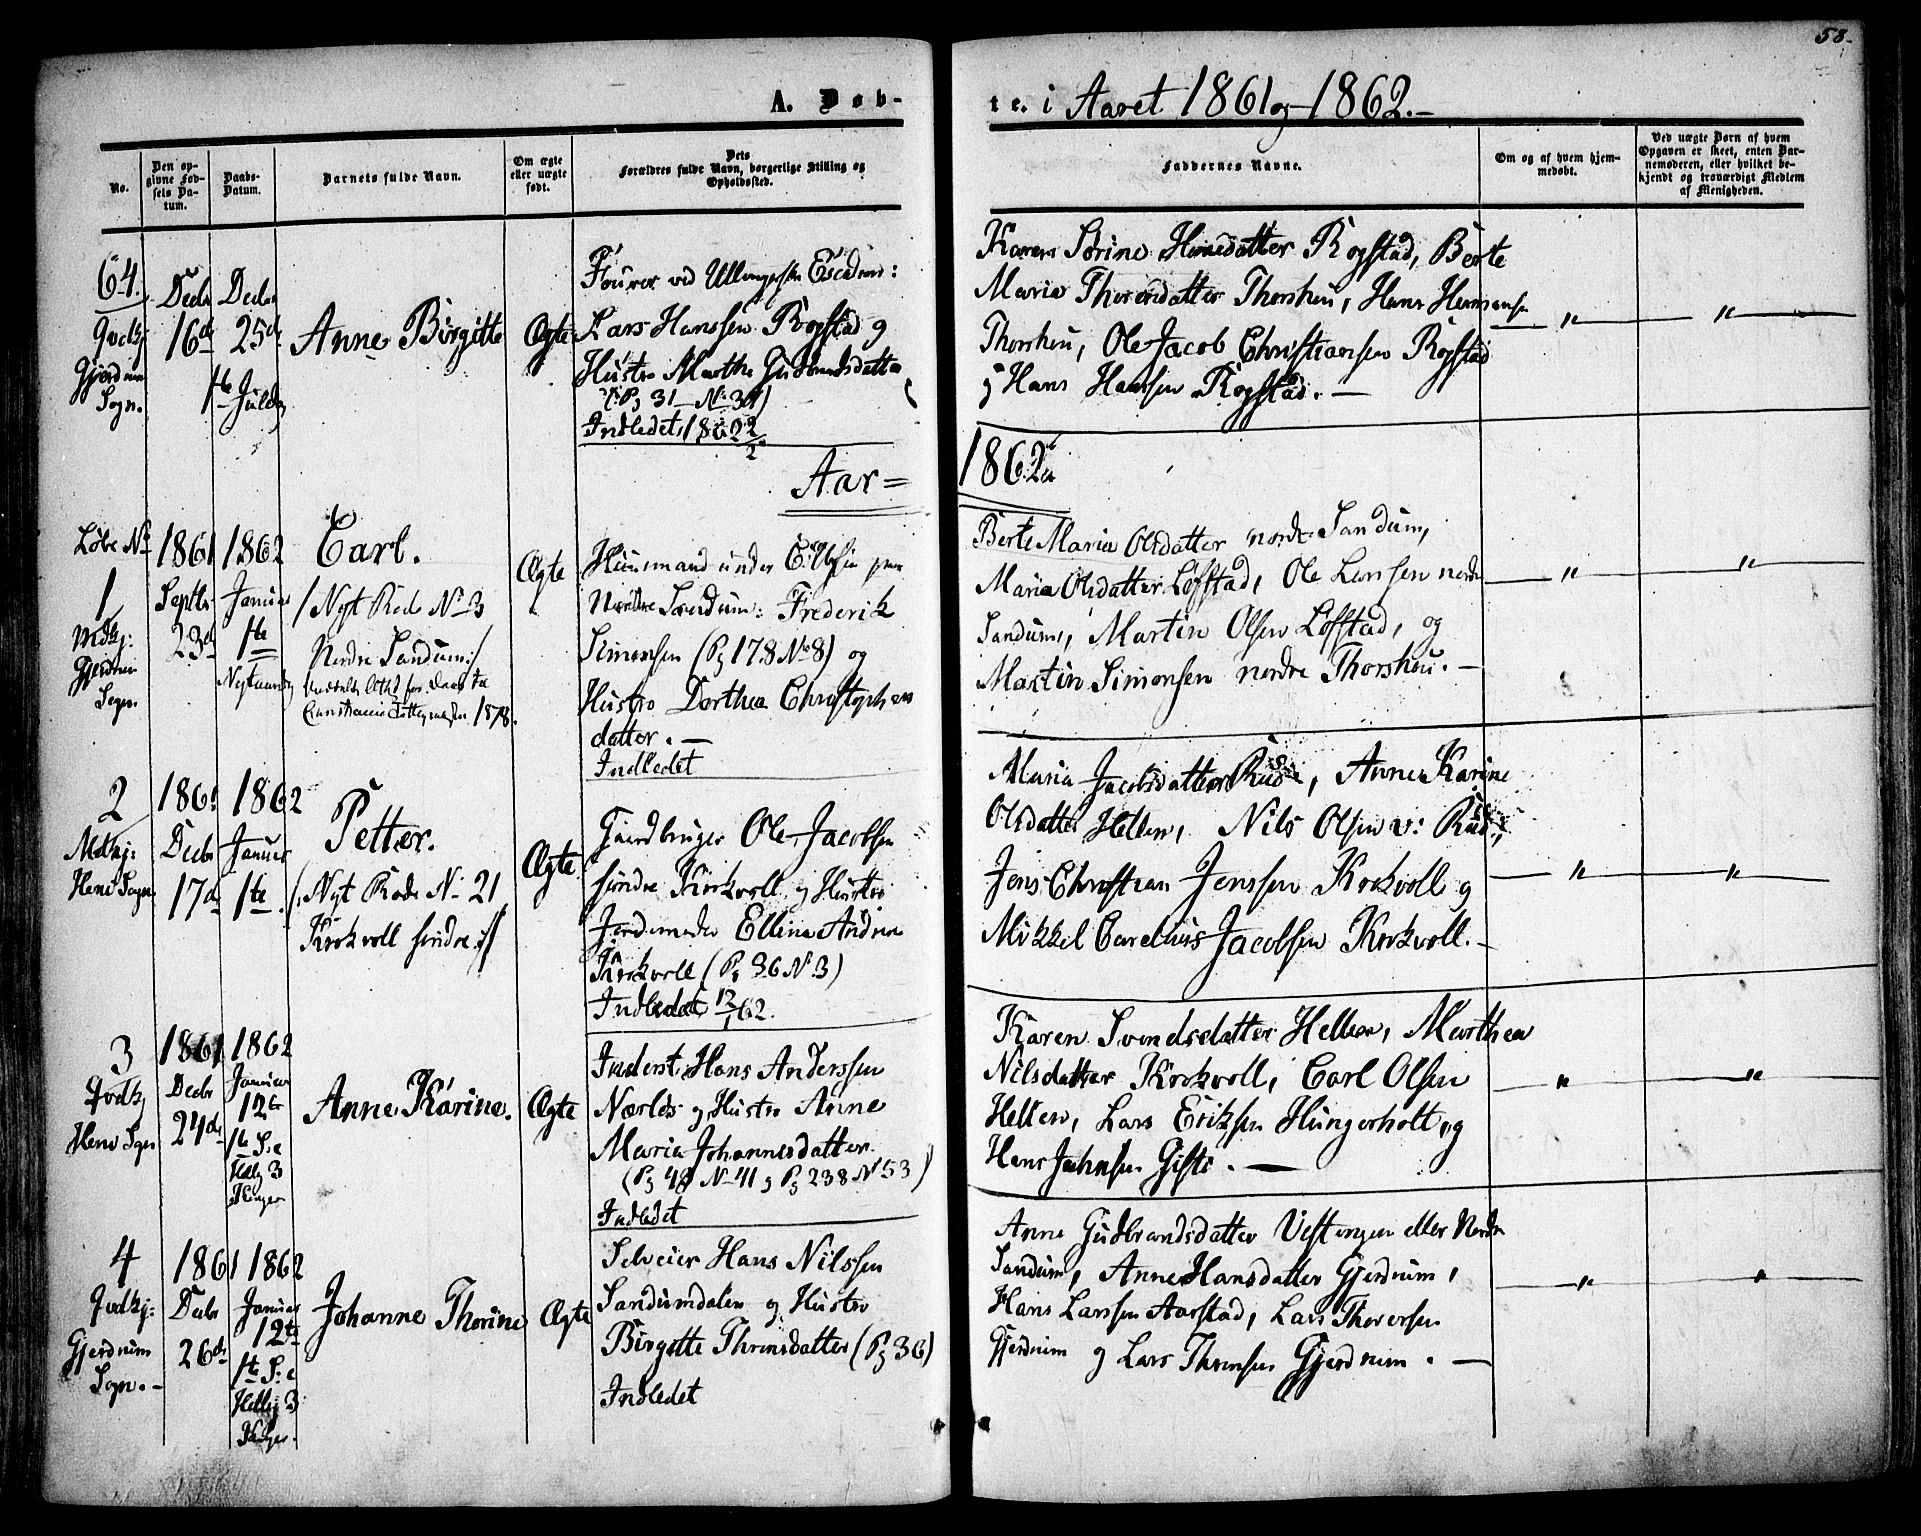 58.
A. Døb-
te. i Aaret 1861 og 1862.-
No.
Den opgivne Fødsels Datum.
Daabs-Datum.
Barnets fulde Navn.
Om ægte eller uægte født.
Dets Forældres fulde Navn, borgerlige Stilling og Opholdssted.
Faddernes Navne.
Om og af hvem hjemmedøbt.
Ved uægte Børn af hvem Opgaven er skeet, enten Barnemoderen, eller hvilket bekjendt og troværdigt Medlem af Menigheden.
64.
Qvdkj
Gjerdrum
Sogn.
Decbr
16de
Decbr
25de
1te Juledg
Anne Birgitte
Ægte
Fourer ved Escadron:
Lars Hanssen Rogstad og
Hustro Marthe Gudbrandsdatter
(: Pg 31 No 30)
Indledet 1862 2/2
Karen Sørine Rogstad, Berte
Maria Thoresdatter Thorshou, Hans Hermansen
Thorshou, Ole Jacob Christiansen Rogstad
og Hans Hansen Rogstad. -
" "
Aar = 1862
Løbe No
1
Mdkj:
Gjerdrum
Sogn.
1861
Septbr
23de
1862
Januar
1te
Nytaarsdg
Carl.
/ Nyt Rode No 3
Nordre Sandum:/
1878.
Ægte
Huusmand under
Nordre Sandum: Frederik
Simensen (Pg 178 No 8) og
Hustro Dorthea Christophers
datter. -
Indledet
Berte Maria Olsdatter nordre Sandum,
Maria Olsdatter Løfstad, Ole Larssen nordre
Sandum, Martin Olsen Løfstad, og
Martin Simensen nordre Thorshou. -
" "
2
Mdkj:
Heni Sogn
1861
Decbr
17de
1862
Januar
1te
Petter.
/: Nyt Rode No 21
Krokvoll søndre :/
Ægte
Gaardbruger Ole Jacobsen
søndre Krokvoll og Hustro
Jordemoder Ellina Andrea
Krokvoll (Pg 36 N 3)
Indledet 12/1 62.
Maria Jacobsdatter Rud, Anne Karine
Olsdatter Hellen, Nils Olsen v: Rud,
Jens Christian Jenssen Krokvoll og
Mikkel Carelius Jacobsen Krokvoll. -
" "
3
Qvdkj
Heni Sogn
1861
Decbr
24de
1862
Januar
12te
1te S: e
Hellig 3
Konger
Anne Karine.
Ægte
Inderst Hans Anderssen
Nærlds og Hustro Anne
Maria Johannesdatter.
(Pg 48 No 41 og Pg 238 N 53)
Indledet
Karen Svendsdatter Hellen, Marthea
Nilsdatter Krokvoll, Carl Olsen
Hellen, Lars Eriksen Hungerholt, og
Hans Jahnsen Gifsti. -
" "
4
Qvdkj:
Gjerdrum
Sogn. -
1861
Decbr
26de
1862
Januar
12te
1te S: e
Hellig 3
Konger.
Johanne Thorine
Ægte
Selveier Hans Nilssen
Sandumdalen og Hustro
Birgitte Thoresdatter (Pg 36)
Indledet
Anne Gudbrandsdatter Vestengen eller Nordre
Sandum, Anne Hansdatter Gjerdrum,
Hans Larssen Aarstad, Lars Thoresen
Gjerdrum og Lars Gjerdrum. -
" "